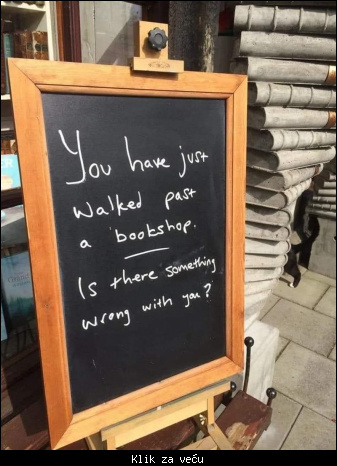 You have just
walked past
a bookshop.
Is there something
wrong with you?
Klik za veću